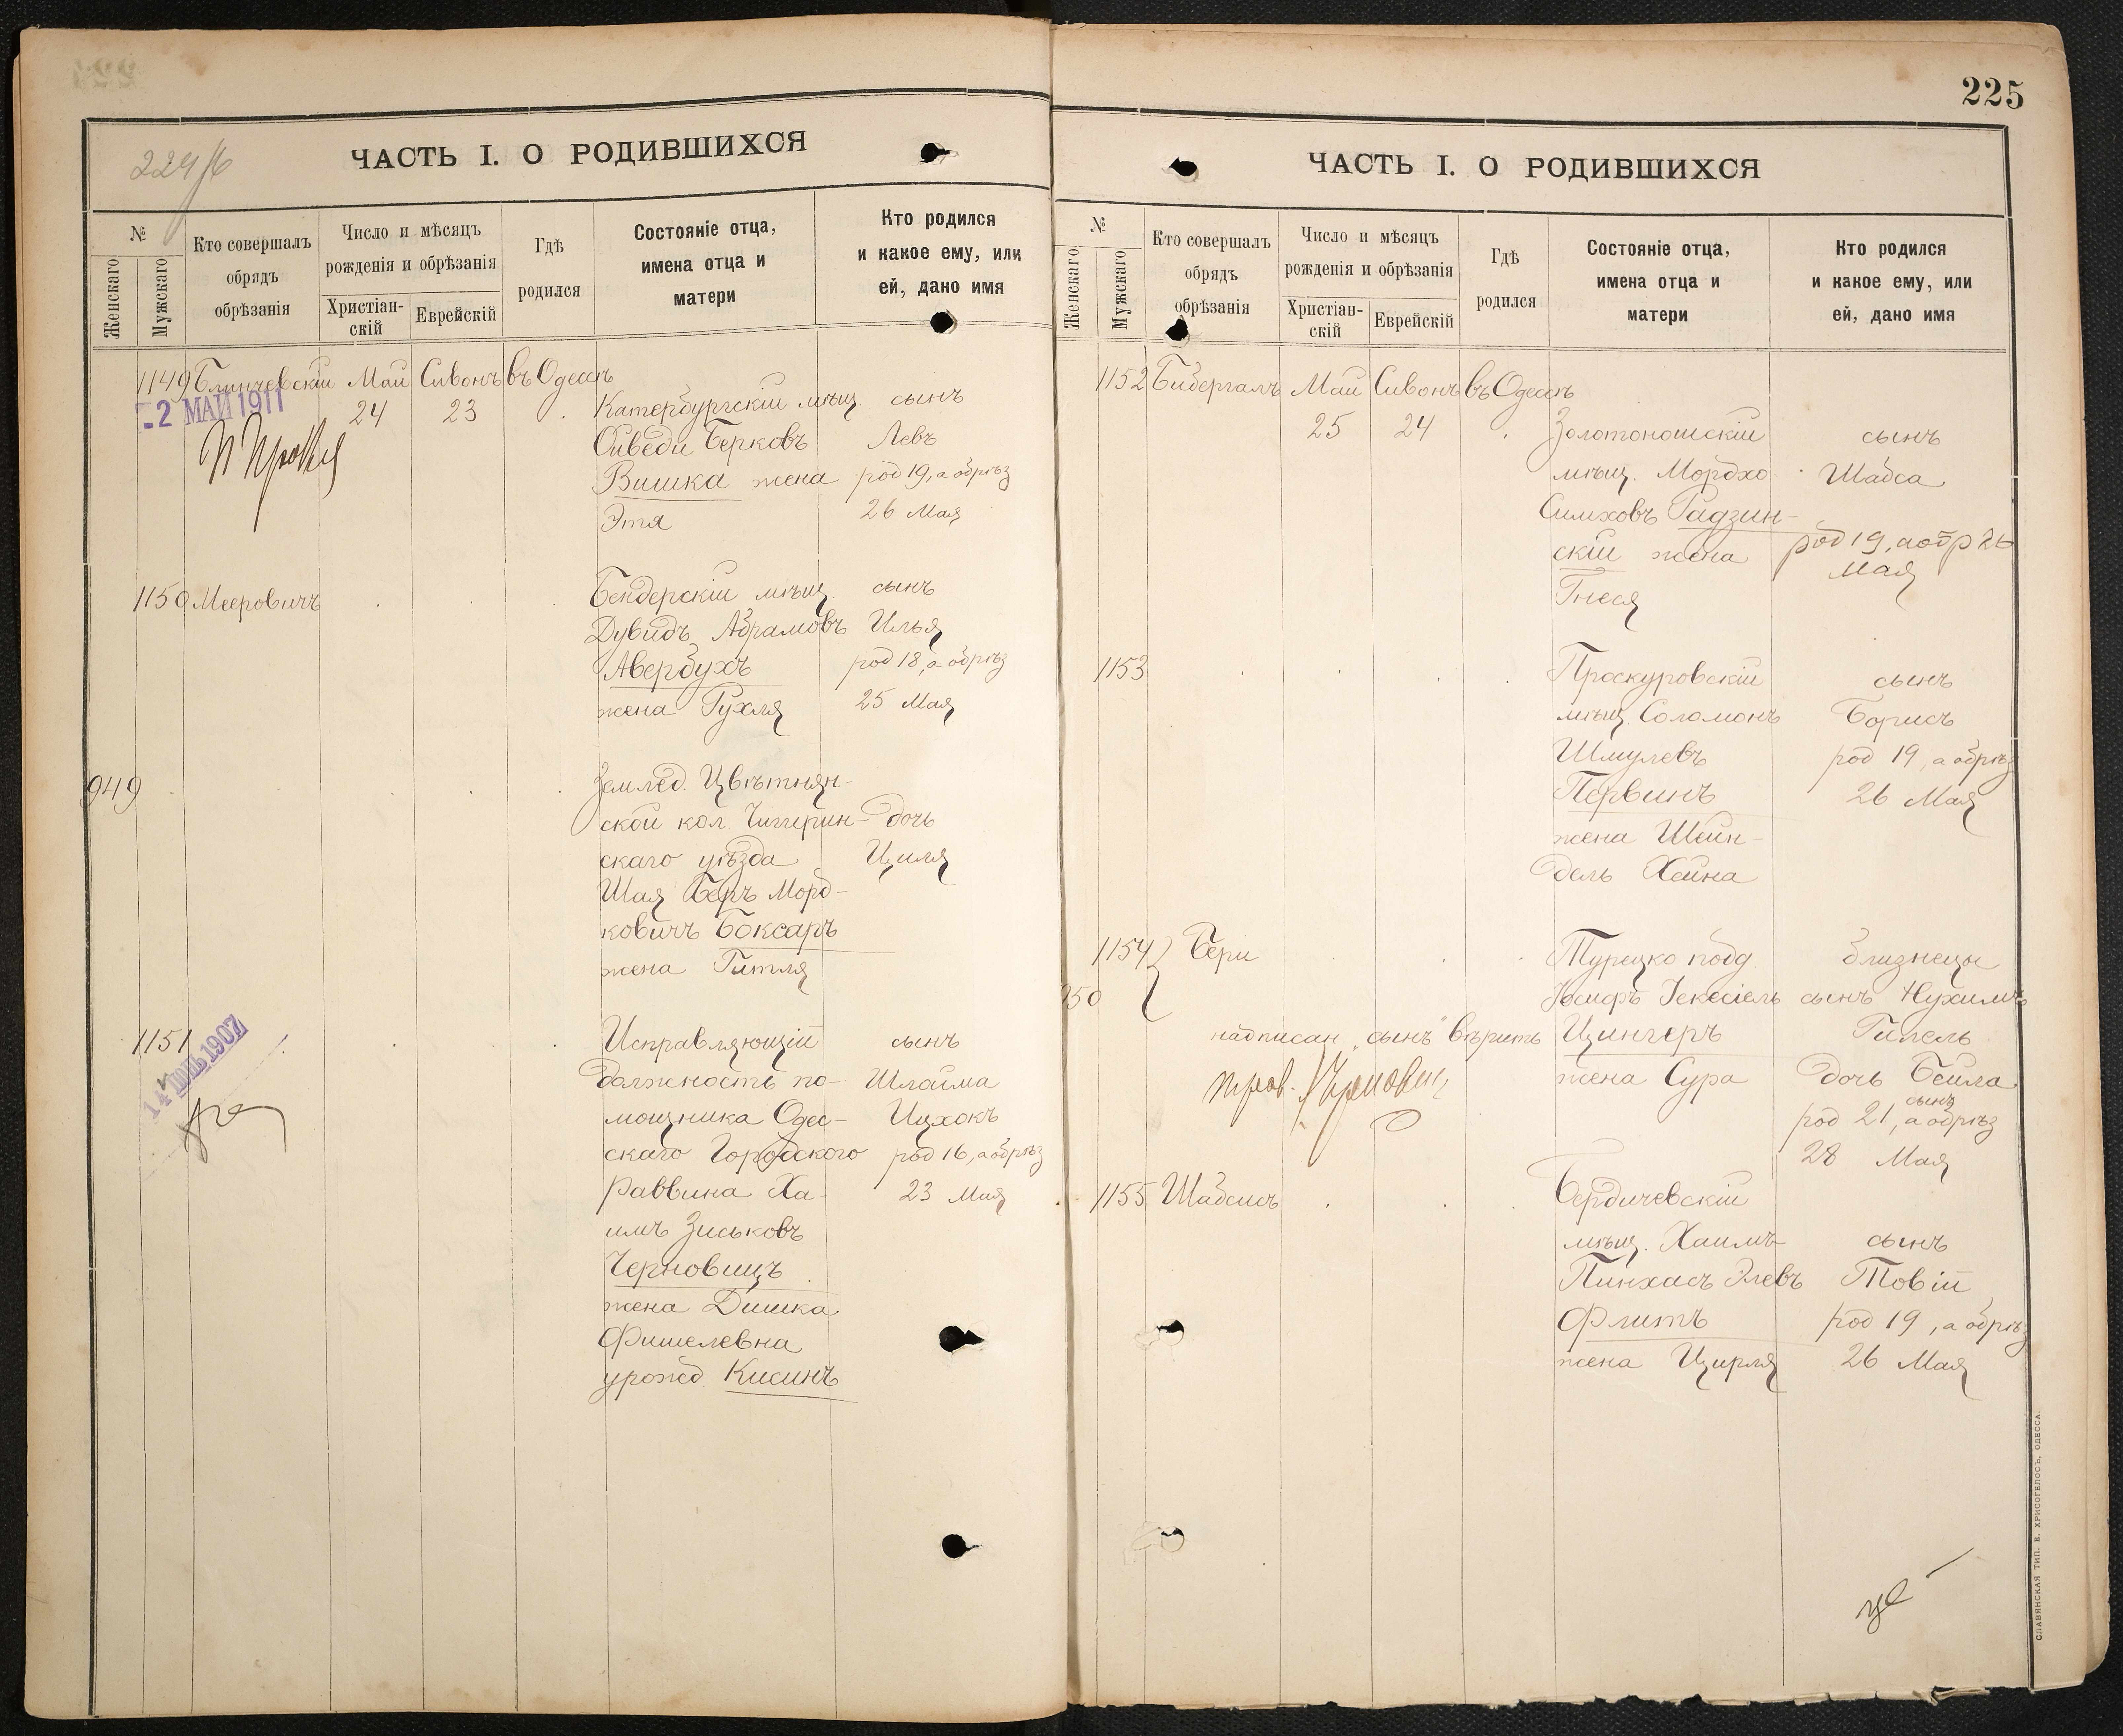 224/б
ЧАСТЬ I. О РОДИВШИХСЯ
№
Женскаго
Мужскаго
Кто совершалъ
обрядъ
обрѣзанія
Число и мѣсяцъ
рожденія и обрѣзанія
Христіан-
скій
Еврейскій
Гдѣ
родился
Состояніе отца,
имена отца и
матери
Кто родился
и какое ему, или
ей, дано имя
1149 Блинчевскій Май Сивонъ въ Одессѣ
2 МАЙ 1911
24 23
Катербургскій мѣщ сынъ
Берковъ Левъ
Вишка жена род 19, а обрѣз
Этя 26 Мая
1150 Мееровичъ
Бендерскій мѣщ. сынъ
Дувидъ Абрамовъ Илья
Авербухъ род 18, а обрѣз
жена Рухля 25 Мая
949
Землед. Цвѣтнян-
ской кол Чигирин- дочь
скаго уѣзда Циля
Шая Беръ Морд-
ковичъ Боксаръ
жена Гитля
1151
14 ІЮНЬ 1907
Исправляющій сынъ
должность по- Шлойма
мощника Одес- Ицхокъ
скаго Городского род 16, а обрѣз
Раввина Ха- 23 Мая
имъ Зиськовъ
Черновицъ
жена Дишка
Фишелевна
урожд Кисинъ
225
ЧАСТЬ I. О РОДИВШИХСЯ
№
Женскаго
Мужскаго
Кто совершалъ
обрядъ
обрѣзанія
Число и мѣсяцъ
рожденія и обрѣзанія
Христіан-
скій
Еврейскій
Гдѣ
родился
Состояніе отца,
имена отца и
матери
Кто родился
и какое ему, или
ей, дано имя
1152 Бибергалъ Май Сивонъ въ Одессѣ
25 24
Золотоношскій сынъ
мѣщ. Мордхо Шабса
Симховъ Радзин-
скій жена род 19, а обр 26
Мая
Гнеся
1153
Проскуровскій сынъ
мѣщ. Соломонъ Борисъ
Шмулевъ род 19, а обрѣз
Первинъ 26 Мая
жена Шейн-
дель Хейна
1154 Бери
Турецко подд близнецы
950
Іосифъ Іекесіель сынъ Нухимъ
надписан „сынъ" вѣрить
Цингеръ Гилель
жена Сура дочь Бейла
сынъ
род 21, а обрѣз
28 Мая
1155 Шабсисъ
Бердичевскій
мѣщ. Хаимъ- сынъ
Пинхасъ Элевъ Товій
Флитъ род 19, а обрѣз
жена Цирля 26 Мая
СЛАВЯНСКАЯ ТИП. Е. ХРИСОГЕЛОСЪ, ОДЕССА.